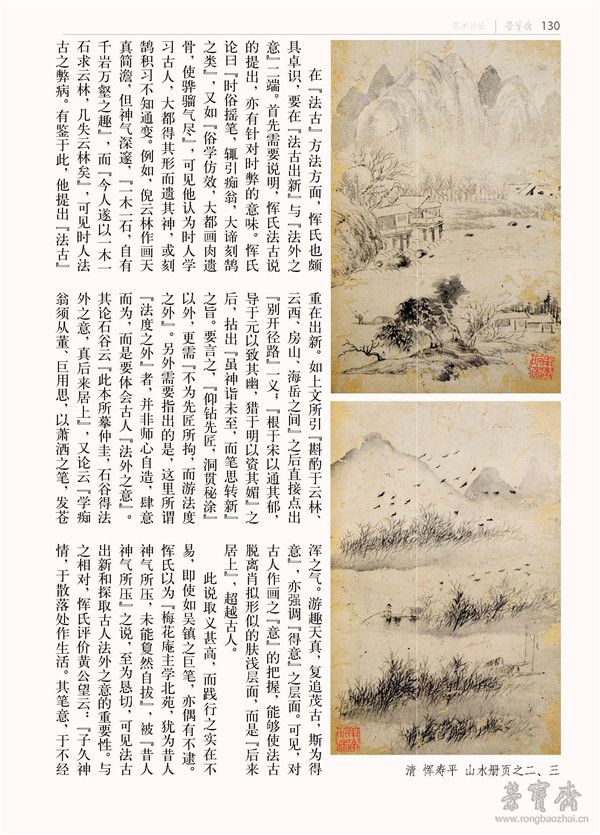 艺术论坛 荣宝斋 130
在『法古』方法方面，恽氏也颇
具卓识，要在『法古出新』与『法外之
意』二端。首先需要说明，恽氏法古说
的提出，亦有针对时弊的意味。恽氏
论曰『时俗摇笔，辄引痴翁，大谛刻鹄
之类』，又如『俗学仿效，大都画肉遗
骨，使骅骝气尽』，可见他认为时人学
习古人，大都得其形而遗其神，或刻
鹄积习不知通变。例如，倪云林作画天
真简澹，但神气深邃，『一木一石，自有
千岩万壑之趣』，而『今人遂以一木一
石求云林，几失云林矣』，可见时人法
古之弊病。有鉴于此，他提出『法古』
重在出新。如上文所引『斟酌于云林、
云西、房山、海岳之间』之后直接点出
『别开径路』一义，『根于宋以通其郁，
导于元以致其幽，猎于明以资其媚』之
后，拈出『虽神诣未至，而笔思转新』
之旨。要言之，『仰钻先匠，洞贯秘涂』
以外，更需『不为先匠所拘，而游法度
之外』。另外需要指出的是，这里所谓
『法度之外』者，并非师心自造，肆意
而为，而是要体会古人『法外之意』。
其论石谷云『此本所摹仲圭，石谷得法
外之意，真后来居上』，又论云『学痴
翁须从董、巨用思，以萧洒之笔，发苍
浑之气。游趣天真，复追茂古，斯为得
意』，亦强调『得意』之层面。可见，对
古人作画之『意』的把握，能够使法古
脱离肖拟形似的肤浅层面，而是『后来
居上』，超越古人。
此说取义甚高，而践行之实在不
易，即使如吴镇之巨笔，亦偶有不逮。
恽氏以为『梅花庵主学北苑，犹为昔人
神气所压，未能敻然自拔』，被『昔人
神气所压』之说，至为恳切，可见法古
出新和探取古人法外之意的重要性。与
之相对，恽氏评价黄公望云：『子久神
情，于散落处作生活。其笔意，于不经
清 恽寿平 山水册页之二、三
荣宝斋
www.rongbaozhai.cn